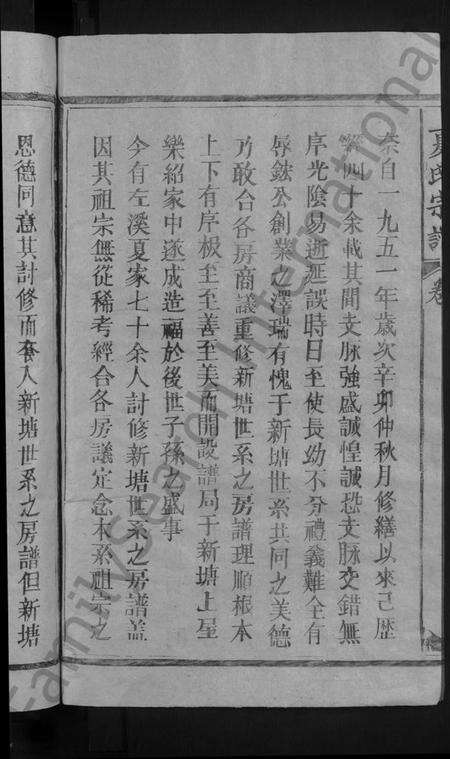 夏氏宗譜 卷
奈自一九五一年歲次辛卯仲秋月修繕以來已歷
第四十余載其間支脉強盛誠惶誠恐支脉交錯無
序光陰易逝延誤時日至使長幼不分禮義難全有
辱鉉公創業之澤瑞有愧于新塘世系共同之美德
乃敢合各房商議重修新塘世系之房譜理順根本
上下有序极至至善至美而開設譜局于新塘上屋
樂紹家中遂成造福於後世子孫之盛事
今有左溪夏家七十余人討修新塘世系之房譜盖
因其祖宗無從稀考經合各房議定念木系祖宗之
恩德同意其討修而奎入新塘世系之房譜但新塘
FamilySearch International